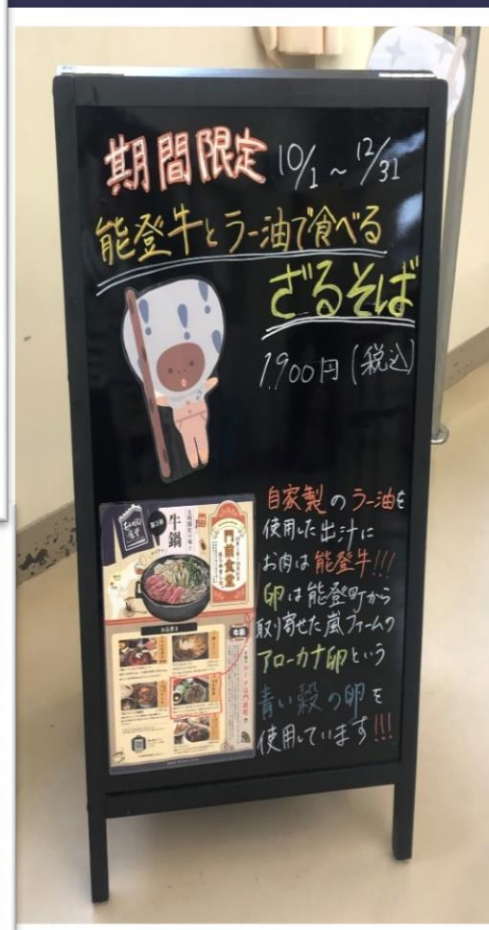 期間限定 10/1～12/31
能登牛とラー油で食べる
ざるそば
1,900円(税込)
自家製のラー油を
使用した出汁に
お肉は能登牛!!!
卵は能登町から
取り寄せた嵐ファームの
アローカナ卵という
青い殻の卵を
使用しています!!!
牛鍋
門前食堂